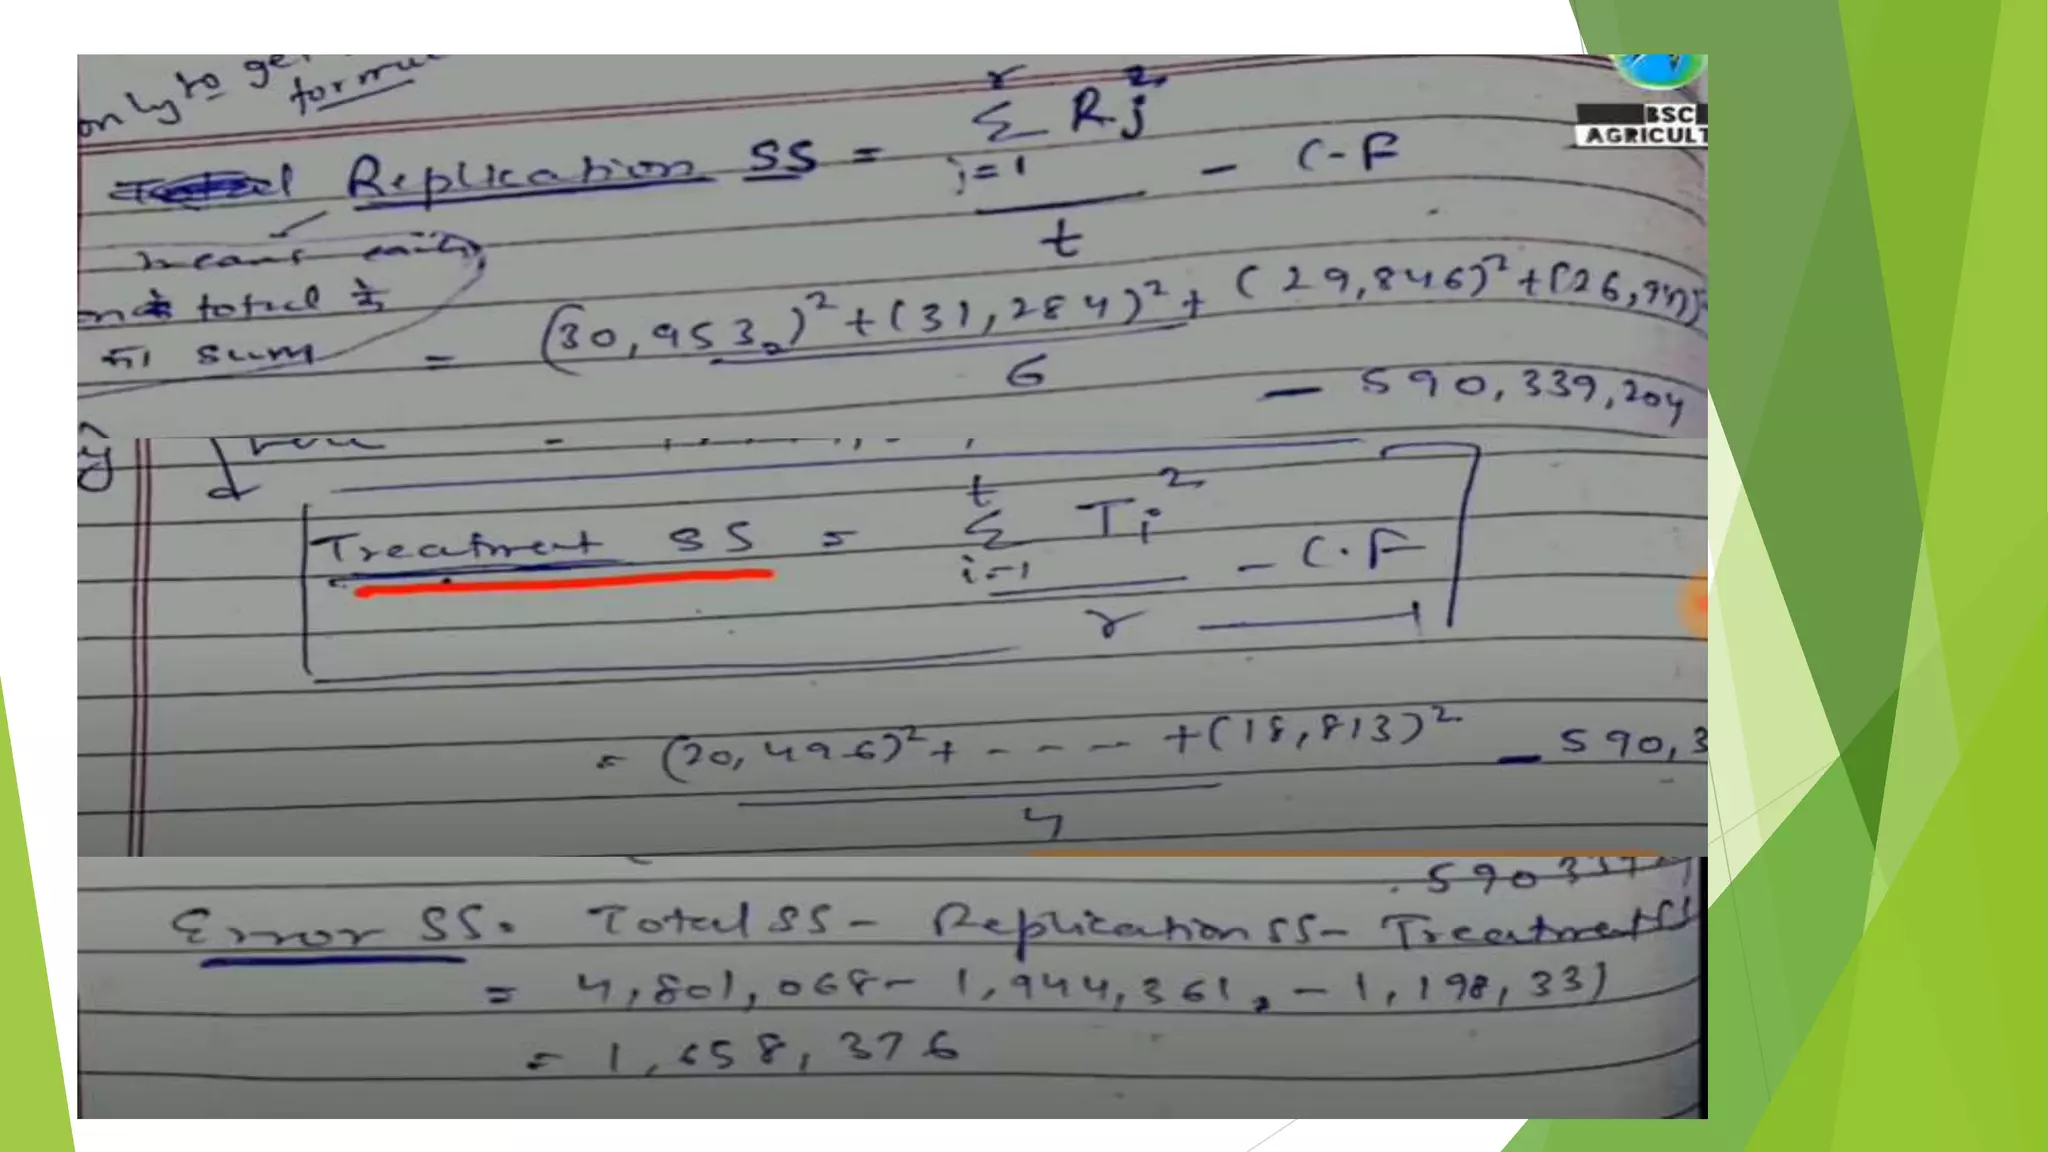 only to get
formu
BSC
AGRICULT
Replication SS = r Σ j=1 Rj² / t - C.F
means each
total
का sum
= (30,953)² + (31,284)² + (29,846)² + (26,947)² / 6 - 590,339,204
Treatment SS = t Σ i=1 Ti² / r - C.F
= (20,496)² + ---- + (18,813)² / 4 - 590,3
Error SS = Total SS - Replication SS - Treatment SS
= 4,801,068 - 1,944,361, - 1,198,331
= 1,658,376